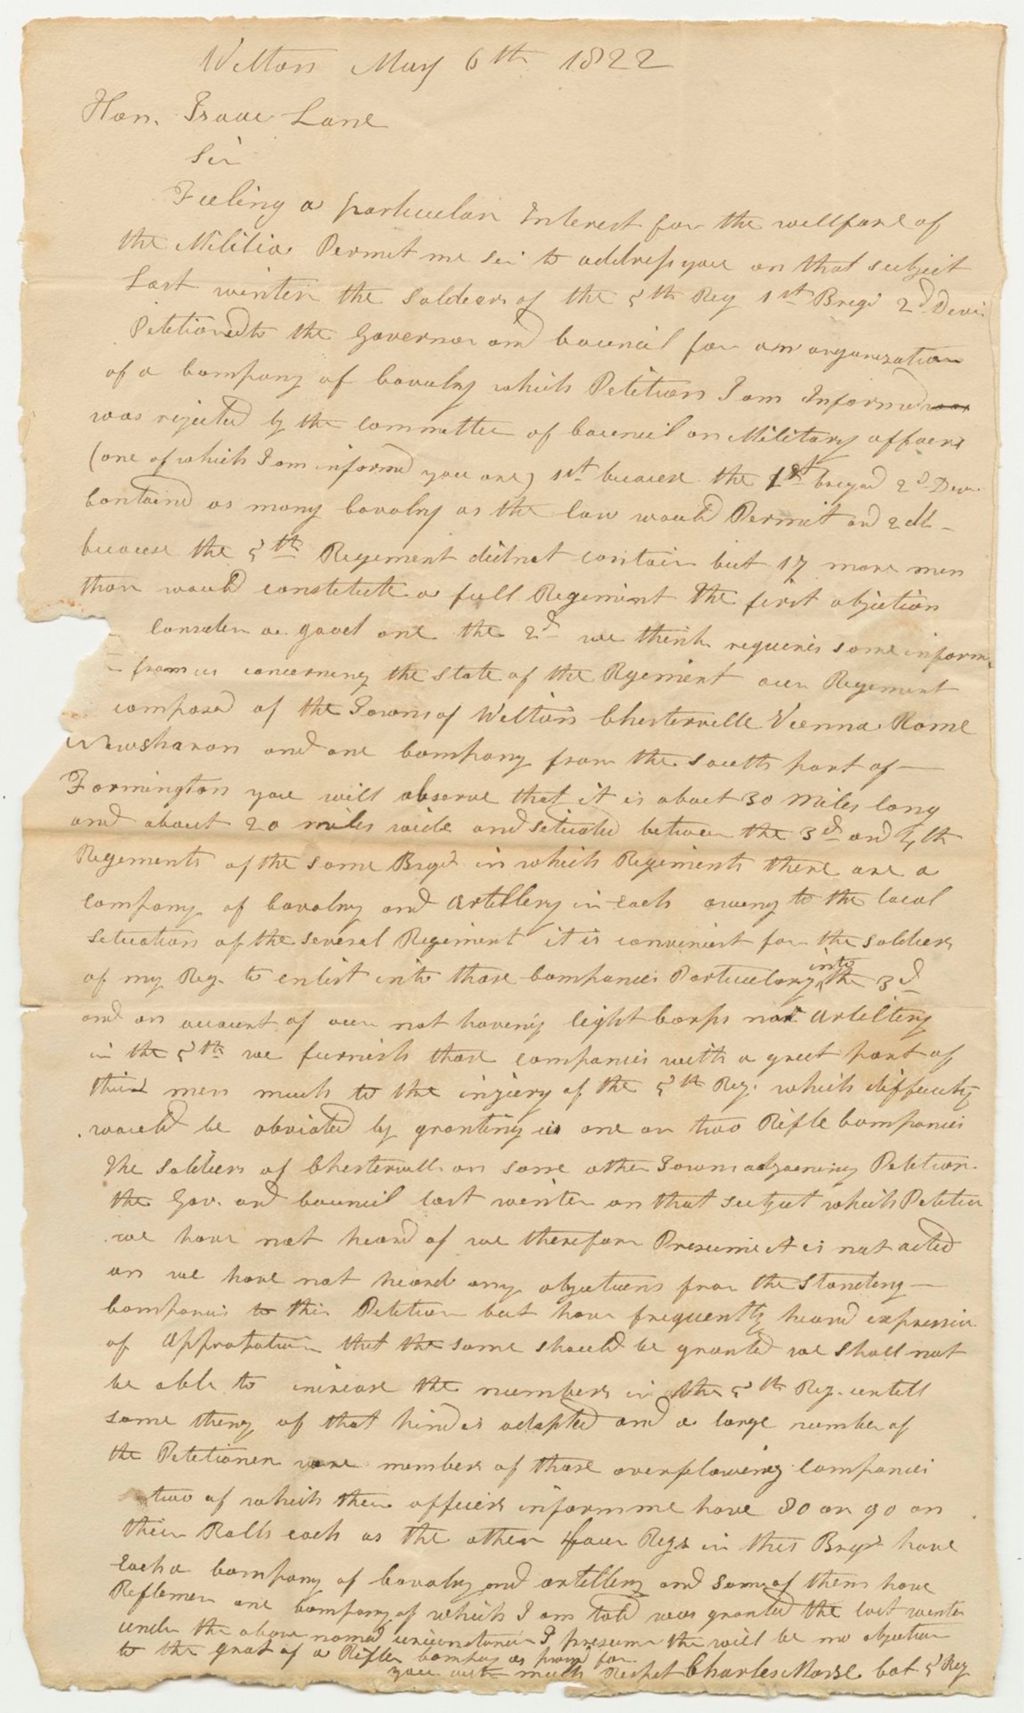 Wilton May 6th 1822
Hon. Isaac Lane
Sir
Feeling a particular Interest for the wellfare of
the Militia Permit me Sir to address you on that subject
Last winter the soldiers of the 5th Reg 1st Brigd 2d Devi
Petitioned to the Governor and Council for an organization
of a Company of Cavalry which Petition I am Informed
was rejected by the Committee of Council on Military affairs
(one of which I am informd you are) 1st because the 1st bregad 2d Devn
Contained as many Cavalry as the law would Permit and 2dly
because the 5th Regement did not contain but 17 more men
than would constitute a full Regement the first objection
Consider a good one the 2d we think requires some inform
from us concerning the state of the Regement our Regement
composed of the Towns of Wilton Chesterville Vienna Rome
Newsharon and one Company from the south part of
Farmington you will observe that it is about 30 miles long
and about 20 miles wide and situated between the 3d and 4th
Regements of the same Brigd in which Regements there are a
company of Cavalry and Artillery in each owing to the local
situation of the several Regement it is convenient for the soldiers
of my Reg. to enlist into those Companies Particulary into the 3d
and on account of our not having light Corps nor Artillery
in the 5th we furnish those companies with a great part of
their men much to the injury of the 5th Reg. which difficulty
would be obviated by granting us one or two Rifle Companies
the Soldiers of Chestervill an some other Towns adjoining Petition
the Gov. and Council last winter on that subject which Petition
we have not heard of we therefore Presume it is not acted
on we have not heard any objections from the standing
Companies to this Petition but have frequently heard expression
of Approbation that the same should be granted we shall not
be able to increase the numbers in the 5th Reg. untill
some thing of that kind is adopted and a large number of
the Petitioners were members of those overflowing Companies
two of which their officers inform me have 80 or 90 on
their Rolls each as the other four Regs in this Brigd have
Each a Company of Cavalry and artillery and some of them have
Reflemen one Company of which I am told was granted the last winter
under the above named circumstances I presume the will be no objection
to the grat of a Rifle Company as prayd for
you with much Respect Charles Morse Col 5 Reg